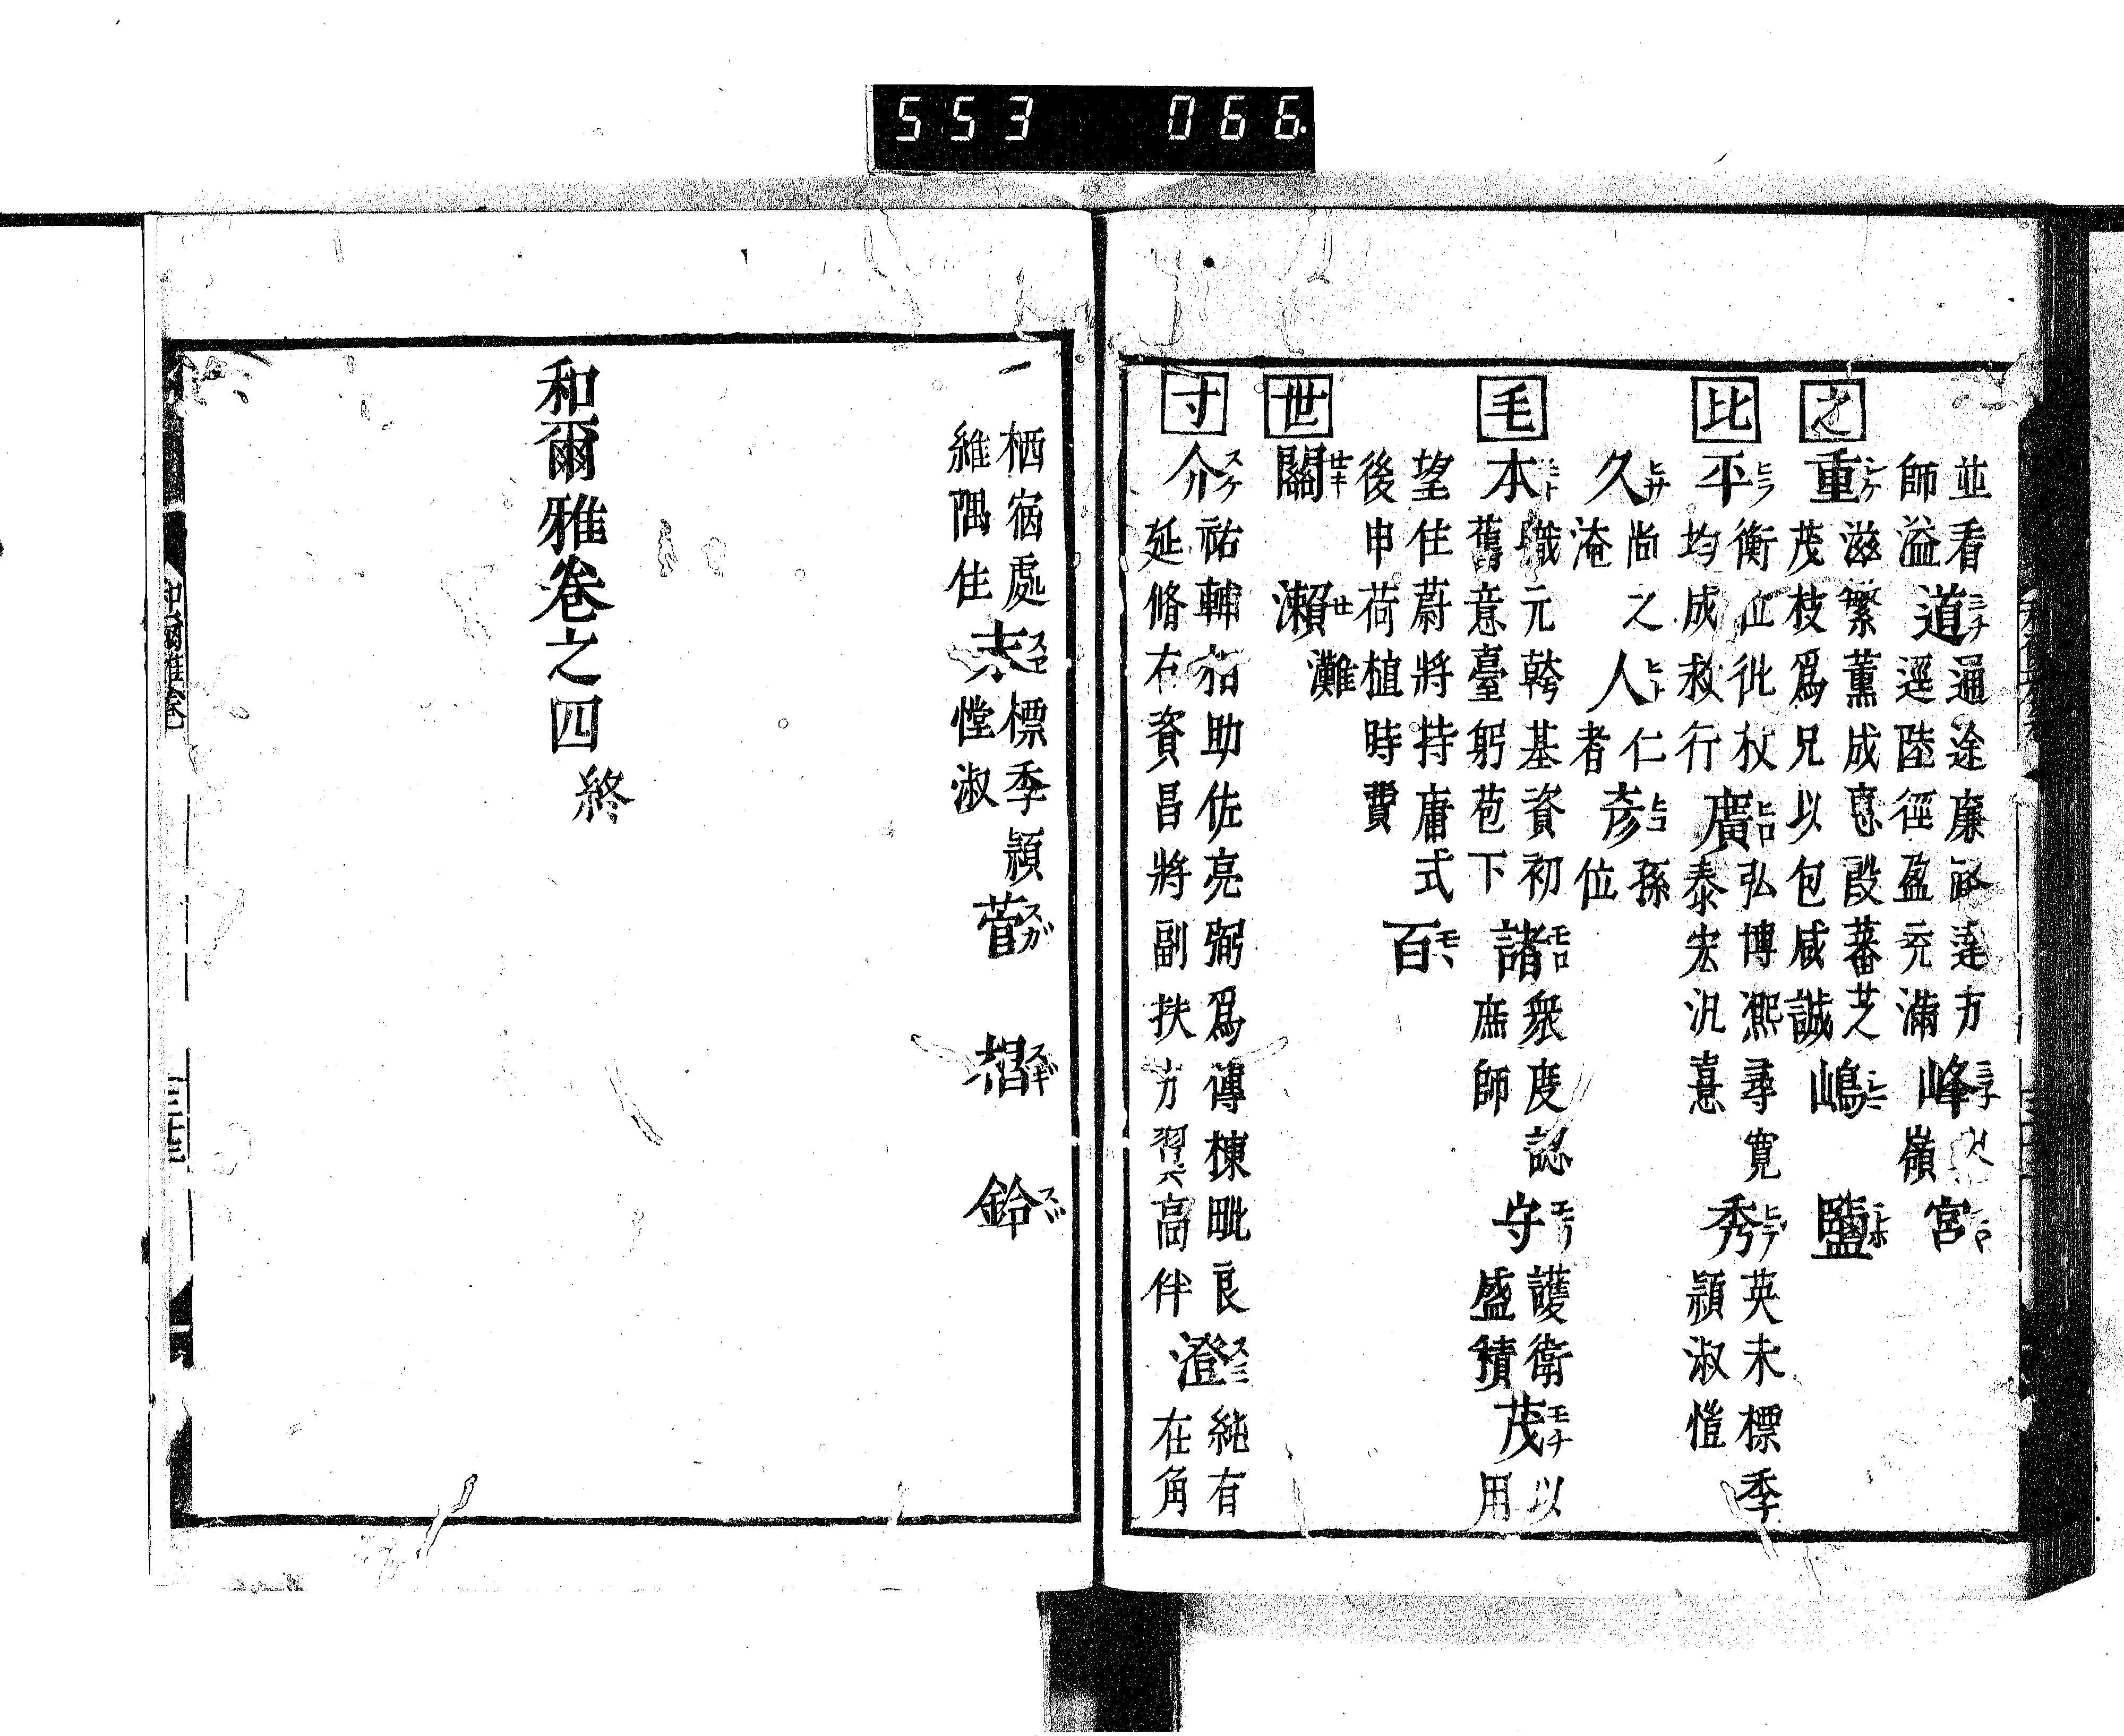 553 066.
並看
師溢
道ミチ
通途廉路達方
逕陸徑盈充滿
峰ミ子
嶺
宮
之
重シケ
滋繁薫成惠殷蕃芝
茂枝爲兄以包咸誠
嶋シマ
鹽シホ
比
平ヒラ
衡位批杖
均成救行
廣ヒロ
弘博凞尋寛
泰宏汎憙
秀ヒテ
英末標季
穎淑愷
久ヒサ
尚之
淹
人ヒト
仁
者
彦ヒコ
孫
位
毛
本モト
職元幹基資初
舊意臺躬苞下
諸モロ
衆度認
庶師
守モリ
護衛
盛積
茂モチ
以
用
望住蔚將持庸式
後申荷植時費
百モヽ
世
關セキ
瀬セ
灘
寸
介スケ
祐輔祐助佐亮弼爲傳棟毗良
延脩右資昌將副扶方翼高伴
澄スミ
純有
在角
栖宿處
維隅住
末スヱ
標季穎
惶淑
菅スガ
榴スギ
鈴スヾ
和爾雅卷之四終
和爾雅卷
三十七